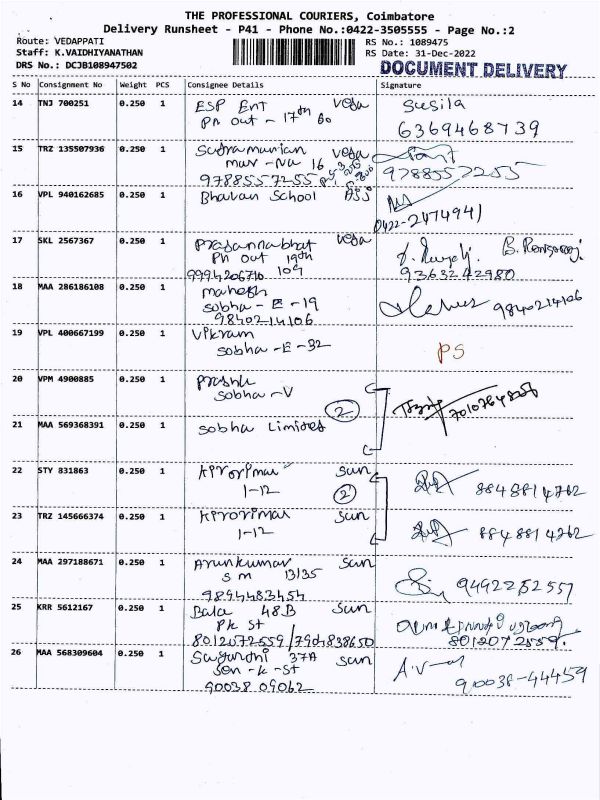 THE PROFESSIONAL COURIERS, Coimbatore
Delivery Runsheet - P41 - Phone No.:0422-3505555 - Page No.:2
Route: VEDAPPATI
Staff: K.VAIDHIYANATHAN
DRS No.: DCJB108947502
RS No.: 1089475
RS Date: 31-Dec-2022
DOCUMENT DELIVERY
S No Consignment No Weight PCS Consignee Details Signature
14 TNJ 700251 0.250 1 ESP Ent veda Susila
Pn out - 17th 60
6369468739
15 TRZ 135507936 0.250 1 veda
mar - Na 16
9788557255 9788557255
16 VPL 940162685 0.250 1 Bhavan School
0422-2474941
17 SKL 2567367 0.250 1 Prasannabhat veda
Pn out 19th
9994206710 109 9363242980
18 MAA 286186108 0.250 1 mahesh
sobha - E - 19
9840214106 9840214106
19 VPL 400667199 0.250 1 Vikram
sobha - E - 32 PS
20 VPM 4900885 0.250 1
sobha - V
2
21 MAA 569368391 0.250 1 sobha Limited
22 STY 831863 0.250 1 Kirorimal sun
1-12 2
23 TRZ 145666374 0.250 1 Kirorimal sun
1-12
24 MAA 297188671 0.250 1 Arunkumar sun
S M 13/35
9894483454
25 KRR 5612167 0.250 1 Bala 48B sun
Pk st
8012072559 / 7904838650 8012072559.
26 MAA 568309604 0.250 1 37A sun
Sen - k - st
90038 09062 90038-44459